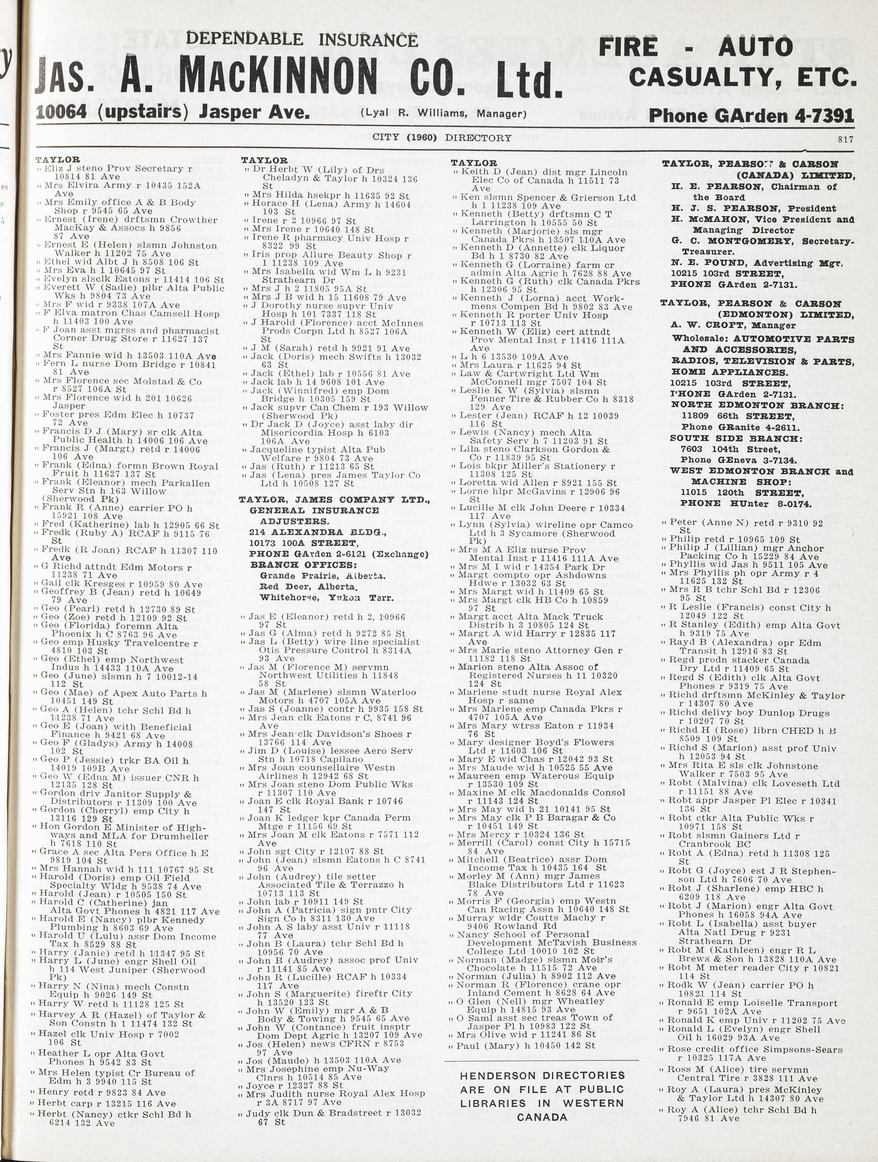 DEPENDABLE INSURANCE
JAS. A. MACKINNON CO. Ltd.
10064 (upstairs) Jasper Ave. (Lyal R. Williams, Manager)
FIRE - AUTO
CASUALTY, ETC.
Phone GArden 4-7391
CITY (1960) DIRECTORY 817
TAYLOR
" Eliz J steno Prov Secretary r
10814 81 Ave
" Mrs Elvira Army r 10435 152A
Ave
" Mrs Emily office A & B Body
Shop r 9545 65 Ave
" Ernest (Irene) drftsmn Crowther
MacKay & Assocs h 9856
87 Ave
" Ernest E (Helen) slsmn Johnston
Walker h 11202 75 Ave
" Ethel wid Albt J h 8508 106 St
" Mrs Eva h 1 10645 97 St
" Evelyn slsclk Eatons r 11414 106 St
" Everett W (Sadie) plbr Alta Public
Wks h 9804 73 Ave
" Mrs F wid r 9338 107A Ave
" F Elva matron Chas Camsell Hosp
h 11403 100 Ave
" F Joan asst mgrss and pharmacist
Corner Drug Store r 11627 137
St
" Mrs Fannie wid h 13503 110A Ave
" Fern L nurse Dom Bridge r 10841
81 Ave
" Mrs Florence sec Molstad & Co
r 8527 106A St
" Mrs Florence wid h 201 10626
Jasper
" Foster pres Edm Elec h 10737
72 Ave
" Francis D J (Mary) sr clk Alta
Public Health h 14006 106 Ave
" Francis J (Margt) retd r 14006
106 Ave
" Frank (Edna) formn Brown Royal
Fruit h 11627 137 St
" Frank (Eleanor) mech Parkallen
Serv Stn h 163 Willow
(Sherwood Pk)
" Frank R (Anne) carrier PO h
15921 108 Ave
" Fred (Katherine) lab h 12905 66 St
" Fredk (Ruby A) RCAF h 9115 76
St
" Fredk (R Joan) RCAF h 11307 110
Ave
" G Richd attndt Edm Motors r
11238 71 Ave
" Gail clk Kresges r 10959 80 Ave
" Geoffrey B (Jean) retd h 10649
79 Ave
" Geo (Pearl) retd h 12730 89 St
" Geo (Zoe) retd h 12109 92 St
" Geo (Florida) foremn Alta
Phoenix h C 8763 96 Ave
" Geo emp Husky Travelcentre r
4810 103 St
" Geo (Ethel) emp Northwest
Indus h 14433 110A Ave
" Geo (June) slsmn h 7 10012-14
112 St
" Geo (Mae) of Apex Auto Parts h
10451 149 St
" Geo A (Helen) tchr Schl Bd h
11238 71 Ave
" Geo E (Joan) with Beneficial
Finance h 9421 68 Ave
" Geo F (Gladys) Army h 14008
102 St
" Geo P (Jessie) trkr BA Oil h
14019 109B Ave
" Geo W (Edna M) issuer CNR h
12135 128 St
" Gordon driv Janitor Supply &
Distributors r 11309 100 Ave
" Gordon (Cherryl) emp City h
13116 129 St
" Hon Gordon E Minister of High-
ways and MLA for Drumheller
h 7618 110 St
" Grace A sec Alta Pers Office h E
9819 104 St
" Mrs Hannah wid h 111 10767 95 St
" Harold (Doris) emp Oil Field
Specialty Wldg h 9538 74 Ave
" Harold (Jean) r 10505 150 St
" Harold C (Catherine) jan
Alta Govt Phones h 4821 117 Ave
" Harold E (Nancy) plbr Kennedy
Plumbing h 8603 69 Ave
" Harold U (Lulu) assr Dom Income
Tax h 8529 88 St
" Harry (Janie) retd h 11347 95 St
" Harry L (June) engr Shell Oil
h 114 West Juniper (Sherwood
Pk)
" Harry N (Nina) mech Constn
Equip h 9026 149 St
" Harry W retd h 11128 125 St
" Harvey A R (Hazel) of Taylor &
Son Constn h 1 11474 132 St
" Hazel clk Univ Hosp r 7002
106 St
" Heather L opr Alta Govt
Phones h 9542 83 St
" Mrs Helen typist Cr Bureau of
Edm h 3 9940 115 St
" Henry retd r 9823 84 Ave
" Herbt carp r 13215 116 Ave
" Herbt (Nancy) ctkr Schl Bd h
6214 132 Ave
TAYLOR
" Dr Herbt W (Lily) of Drs
Cheladyn & Taylor h 10324 136
St
" Mrs Hilda hsekpr h 11635 92 St
" Horace H (Lena) Army h 14604
103 St
" Irene r 2 10966 97 St
" Mrs Irene r 10640 148 St
" Irene R pharmacy Univ Hosp r
8322 99 St
" Iris prop Allure Beauty Shop r
1 11238 109 Ave
" Mrs Isabella wid Wm L h 9231
Strathearn Dr
" Mrs J h 2 11805 95A St
" Mrs J B wid h 15 11608 79 Ave
" J Dorothy nurse supvr Univ
Hosp h 101 7337 118 St
" J Harold (Florence) acct McInnes
Prods Corpn Ltd h 8527 106A
St
" J M (Sarah) retd h 9921 91 Ave
" Jack (Doris) mech Swifts h 13032
63 St
" Jack (Ethel) lab r 10556 81 Ave
" Jack lab h 14 9608 101 Ave
" Jack (Winnifred) emp Dom
Bridge h 10305 159 St
" Jack supvr Can Chem r 193 Willow
(Sherwood Pk)
" Dr Jack D (Joyce) asst laby dir
Misericordia Hosp h 6103
106A Ave
" Jacqueline typist Alta Pub
Welfare r 9804 73 Ave
" Jas (Ruth) r 11213 65 St
" Jas (Lena) pres James Taylor Co
Ltd h 10508 127 St
TAYLOR, JAMES COMPANY LTD.,
GENERAL INSURANCE
ADJUSTERS.
214 ALEXANDRA BLDG.,
10173 100A STREET,
PHONE GArden 2-6121 (Exchange)
BRANCH OFFICES:
Grande Prairie, Alberta.
Red Deer, Alberta.
Whitehorse, Yukon Terr.
" Jas E (Eleanor) retd h 2, 10966
97 St
" Jas G (Alma) retd h 9272 85 St
" Jas L (Betty) wire line specialist
Otis Pressure Control h 8314A
93 Ave
" Jas M (Florence M) servmn
Northwest Utilities h 11848
58 St
" Jas M (Marlene) slsmn Waterloo
Motors h 4707 105A Ave
" Jas S (Joanne) contr h 9935 158 St
" Mrs Jean clk Eatons r C, 8741 96
Ave
" Mrs Jean clk Davidson's Shoes r
13766 114 Ave
" Jim D (Louise) lessee Aero Serv
Stn h 10718 Capilano
" Mrs Joan counsellaire Westn
Airlines h 12942 68 St
" Mrs Joan steno Dom Public Wks
r 11307 110 Ave
" Joan E clk Royal Bank r 10746
147 St
" Joan K ledger kpr Canada Perm
Mtge r 11156 69 St
" Mrs Joan M clk Eatons r 7571 112
Ave
" John sgt City r 12107 88 St
" John (Jean) slsmn Eatons h C 8741
96 Ave
" John (Audrey) tile setter
Associated Tile & Terrazzo h
10713 113 St
" John lab r 10911 149 St
" John A (Patricia) sign pntr City
Sign Co h 8311 130 Ave
" John A S laby asst Univ r 11118
77 Ave
" John B (Laura) tchr Schl Bd h
10956 70 Ave
" John B (Audrey) assoc prof Univ
r 11141 85 Ave
" John R (Lucille) RCAF h 10334
117 Ave
" John S (Marguerite) fireftr City
h 13520 123 St
" John W (Emily) mgr A & B
Body & Towing h 9545 65 Ave
" John W (Contance) fruit insptr
Dom Dept Agric h 13207 109 Ave
" Jos (Helen) news CFRN r 8753
97 Ave
" Jos (Maude) h 13503 110A Ave
" Mrs Josephine emp Nu-Way
Clnrs h 10514 85 Ave
" Joyce r 12327 88 St
" Mrs Judith nurse Royal Alex Hosp
r 3A 8717 97 Ave
" Judy clk Dun & Bradstreet r 13032
67 St
TAYLOR
" Keith D (Jean) dist mgr Lincoln
Elec Co of Canada h 11511 73
Ave
" Ken slsmn Spencer & Grierson Ltd
h 1 11238 109 Ave
" Kenneth (Betty) drftsmn C T
Larrington h 10555 50 St
" Kenneth (Marjorie) sls mgr
Canada Pkrs h 13507 110A Ave
" Kenneth D (Annette) clk Liquor
Bd h 1 8730 82 Ave
" Kenneth G (Lorraine) farm cr
admin Alta Agric h 7628 88 Ave
" Kenneth G (Ruth) clk Canada Pkrs
h 12306 95 St
" Kenneth J (Lorna) acct Work-
mens Compen Bd h 9802 83 Ave
" Kenneth R porter Univ Hosp
r 10713 113 St
" Kenneth W (Eliz) cert attndt
Prov Mental Inst r 11416 111A
Ave
" L h 6 13530 109A Ave
" Mrs Laura r 11625 94 St
" Law & Cartwright Ltd Wm
McConnell mgr 7507 104 St
" Leslie K W (Sylvia) slsmn
Penner Tire & Rubber Co h 8318
129 Ave
" Lester (Jean) RCAF h 12 10039
116 St
" Lewis (Nancy) mech Alta
Safety Serv h 7 11203 91 St
" Lila steno Clarkson Gordon &
Co r 11839 95 St
" Lois bkpr Miller's Stationery r
11308 125 St
" Loretta wid Allen r 8921 155 St
" Lorne hlpr McGavins r 12906 96
St
" Lucille M clk John Deere r 10334
117 Ave
" Lynn (Sylvia) wireline opr Camco
Ltd h 3 Sycamore (Sherwood
Pk)
" Mrs M A Eliz nurse Prov
Mental Inst r 11416 111A Ave
" Mrs M I wid r 14354 Park Dr
" Margt compto opr Ashdowns
Hdwe r 13032 63 St
" Mrs Margt wid h 11409 65 St
" Mrs Margt clk HB Co h 10859
97 St
" Margt acct Alta Mack Truck
Distrib h 3 10805 124 St
" Margt A wid Harry r 12835 117
Ave
" Mrs Marie steno Attorney Gen r
11182 118 St
" Marion steno Alta Assoc of
Registered Nurses h 11 10320
124 St
" Marlene studt nurse Royal Alex
Hosp r same
" Mrs Marlene emp Canada Pkrs r
4707 105A Ave
" Mrs Mary wtrss Eaton r 11934
76 St
" Mary designer Boyd's Flowers
Ltd r 11603 106 St
" Mary E wid Chas r 12042 93 St
" Mrs Maude wid h 10525 55 Ave
" Maureen emp Waterous Equip
r 13530 109 St
" Maxine M clk Macdonalds Consol
r 11143 124 St
" Mrs May wid h 21 10141 95 St
" Mrs May clk P B Baragar & Co
r 10451 149 St
" Mrs Mercy r 10324 136 St
" Merrill (Carol) const City h 15715
84 Ave
" Mitchell (Beatrice) assr Dom
Income Tax h 10435 164 St
" Morley M (Ann) mgr James
Blake Distributors Ltd r 11623
78 Ave
" Morris F (Georgia) emp Westn
Can Racing Assn h 10640 148 St
" Murray wldr Coutts Machy r
9406 Rowland Rd
" Nancy School of Personal
Development McTavish Business
College Ltd 10010 102 St
" Norman (Madge) slsmn Moir's
Chocolate h 11515 72 Ave
" Norman (Julia) h 8902 112 Ave
" Norman R (Florence) crane opr
Inland Cement h 8628 64 Ave
" O Glen (Nell) mgr Wheatley
Equip h 14815 93 Ave
" O Saml asst sec treas Town of
Jasper Pl h 10983 122 St
" Mrs Olive wid r 11241 86 St
" Paul (Mary) h 10450 142 St
HENDERSON DIRECTORIES
ARE ON FILE AT PUBLIC
LIBRARIES IN WESTERN
CANADA
TAYLOR, PEARSON & CARSON
(CANADA) LIMITED,
H. E. PEARSON, Chairman of
the Board
H. J. S. PEARSON, President
H. McMAHON, Vice President and
Managing Director
G. C. MONTGOMERY, Secretary-
Treasurer.
N. E. POUND, Advertising Mgr.
10215 103rd STREET,
PHONE GArden 2-7131.
TAYLOR, PEARSON & CARSON
(EDMONTON) LIMITED,
A. W. CROFT, Manager
Wholesale: AUTOMOTIVE PARTS
AND ACCESSORIES,
RADIOS, TELEVISION & PARTS,
HOME APPLIANCES.
10215 103rd STREET,
PHONE GArden 2-7131.
NORTH EDMONTON BRANCH:
11809 66th STREET,
Phone GRanite 4-2611.
SOUTH SIDE BRANCH:
7603 104th Street,
Phone GEneva 3-7134.
WEST EDMONTON BRANCH and
MACHINE SHOP:
11015 120th STREET,
PHONE HUnter 8-0174.
" Peter (Anne N) retd r 9310 92
St
" Philip retd r 10965 109 St
" Philip J (Lillian) mgr Anchor
Packing Co h 15229 84 Ave
" Phyllis wid Jas h 9511 105 Ave
" Mrs Phyllis ph opr Army r 4
11625 132 St
" Mrs R B tchr Schl Bd r 12306
95 St
" R Leslie (Francis) const City h
12049 122 St
" R Stanley (Edith) emp Alta Govt
h 9319 75 Ave
" Rayd B (Alexandra) opr Edm
Transit h 12916 83 St
" Regd prodn stacker Canada
Dry Ltd r 11409 65 St
" Regd S (Edith) clk Alta Govt
Phones r 9319 75 Ave
" Richd drftsmn McKinley & Taylor
r 14307 80 Ave
" Richd delivy boy Dunlop Drugs
r 10207 70 St
" Richd H (Rose) librn CHED h B
8509 109 St
" Richd S (Marion) asst prof Univ
h 12053 94 St
" Mrs Rita E sls clk Johnstone
Walker r 7503 95 Ave
" Robt (Malvina) clk Loveseth Ltd
r 11151 88 Ave
" Robt appr Jasper Pl Elec r 10341
136 St
" Robt ctkr Alta Public Wks r
10971 158 St
" Robt slsmn Gainers Ltd r
Cranbrook BC
" Robt A (Edna) retd h 11308 125
St
" Robt G (Joyce) est J R Stephen-
son Ltd h 7606 70 Ave
" Robt J (Sharlene) emp HBC h
6209 118 Ave
" Robt J (Marion) engr Alta Govt
Phones h 16058 94A Ave
" Robt L (Isabella) asst buyer
Alta Natl Drug r 9231
Strathearn Dr
" Robt M (Kathleen) engr R L
Brews & Son h 13828 110A Ave
" Robt M meter reader City r 10821
114 St
" Rodk W (Jean) carrier PO h
10821 114 St
" Ronald E emp Loiselle Transport
r 9651 102A Ave
" Ronald K emp Univ r 11202 75 Ave
" Ronald L (Evelyn) engr Shell
Oil h 16029 93A Ave
" Rose credit office Simpsons-Sears
r 10325 117A Ave
" Ross M (Alice) tire servmn
Central Tire r 3828 111 Ave
" Roy A (Laura) pres McKinley
& Taylor Ltd h 14307 80 Ave
" Roy A (Alice) tchr Schl Bd h
7946 81 Ave